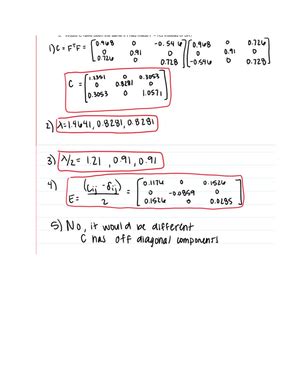 1) C = FᵀF = [0.968 0 -0.546 [0.968 0 0.726
0 0.91 0 0 0.91 0
0.726 0 0.728] -0.546 0 0.728]
C = [1.2351 0 0.3053
0 0.8281 0
0.3053 0 1.0571]
2) λ=1.4641, 0.8281, 0.8281
3) λ/2 = 1.21, 0.91, 0.91
4) E = (Cij - δij)/2 = [0.1176 0 0.1526
0 -0.0859 0
0.1526 0 0.0285]
5) No, it would be different
C has off diagonal components